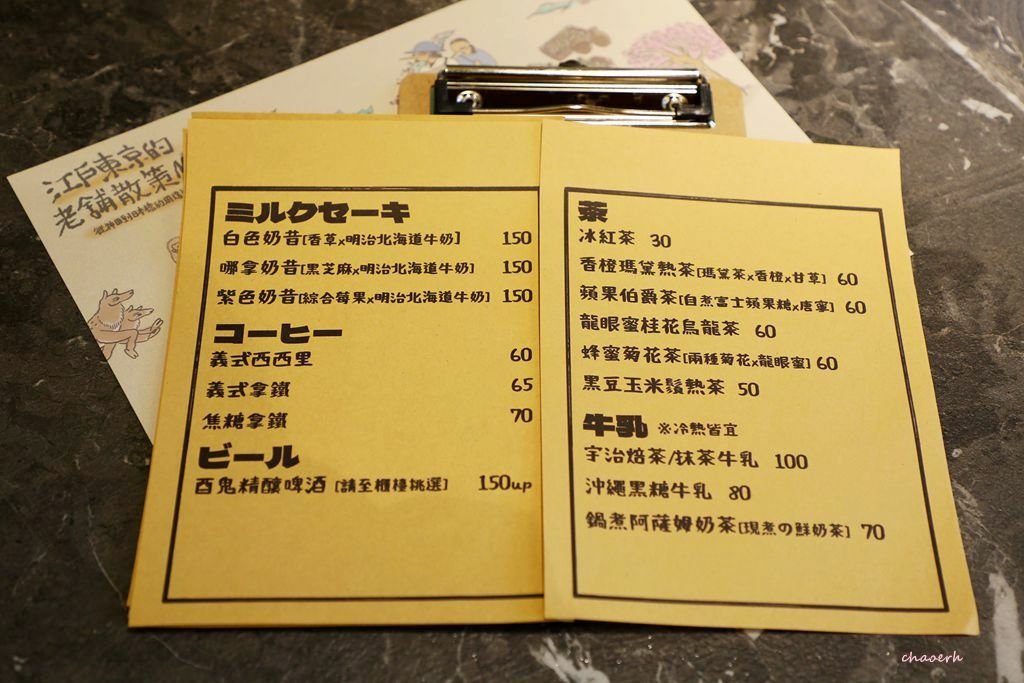 江戶東京的
老舖散策
ミルクセーキ
白色奶昔[香草x明治北海道牛奶] 150
哪拿奶昔[黑芝麻x明治北海道牛奶] 150
紫色奶昔[綜合莓果x明治北海道牛奶] 150
コーヒー
義式西西里 60
義式拿鐵 65
焦糖拿鐵 70
ビール
酉鬼精釀啤酒 [請至櫃檯挑選] 150up
茶
冰紅茶 30
香橙瑪黛熱茶[瑪黛茶x香橙x甘草] 60
蘋果伯爵茶[自煮富士蘋果糖x唐寧] 60
龍眼蜜桂花烏龍茶 60
蜂蜜菊花茶[兩種菊花x龍眼蜜] 60
黑豆玉米鬚熱茶 50
牛乳 ※冷熱皆宜
宇治焙茶/抹茶牛乳 100
沖繩黑糖牛乳 80
鍋煮阿薩姆奶茶[現煮の鮮奶茶] 70
chaoerh